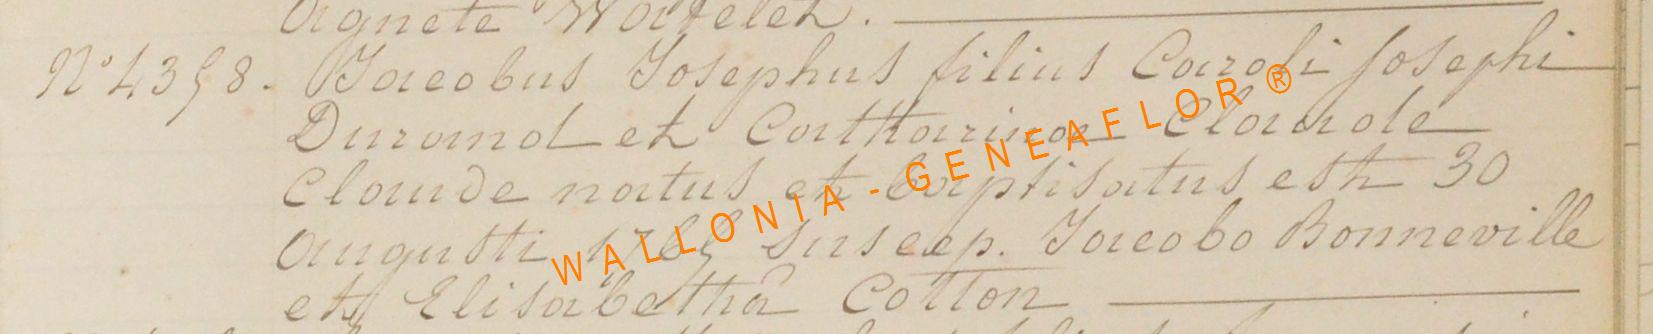 Agnete Wartelet.
N° 4398. Jacobus Josephus filius Caroli Josephi
Durand et Catharinae Claude
Claude natus et baptisatus est 30
Augusti Suscep. Jacobo Bonneville
et Elisabetha Cotton
WALLONIA - GENEAFLOR ®